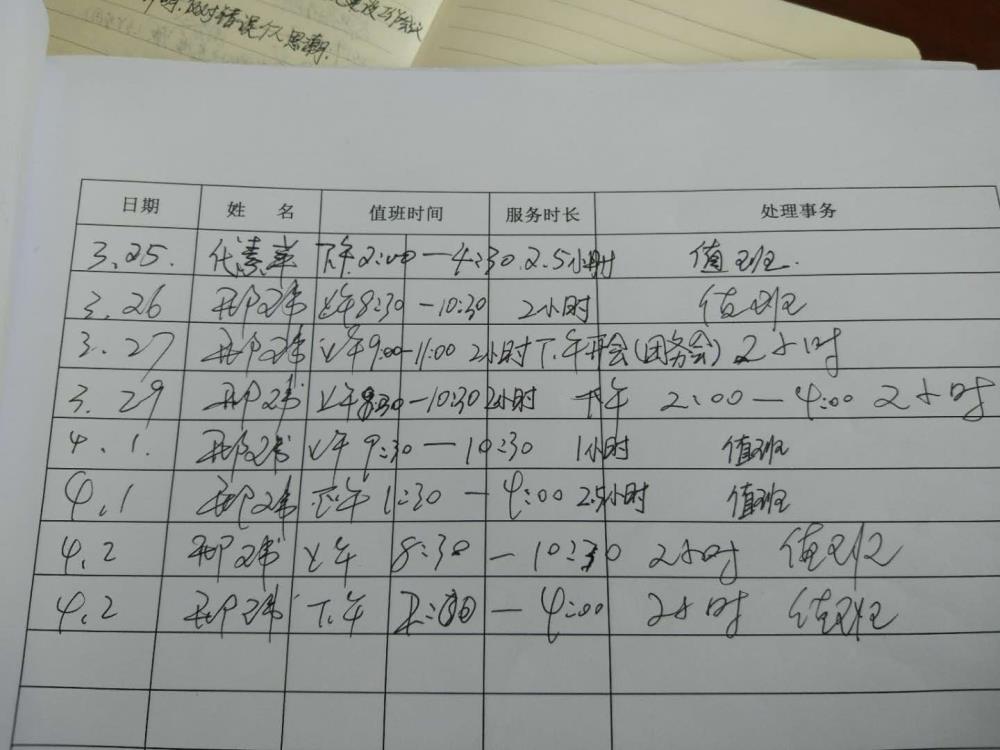 时错误个人思潮.
日期 姓 名 值班时间 服务时长 处理事务
3.25. 代素革 下午2:00—4:30. 2.5小时 值班.
3.26 邢玮 上午8:30—10:30 2小时 值班
3.27 邢玮 上午9:00—11:00 2小时 下午开会(团务会) 2小时
3.29 邢玮 上午8:30—10:30 2小时 下午 2:00—4:00 2小时
4.1. 邢玮 上午9:30—10:30 1小时 值班
4.1 邢玮 下午1:30—4:00 2.5小时 值班
4.2 邢玮 上午 8:30—10:30 2小时 值班
4.2 邢玮 下午 2:00—4:00 2小时 值班